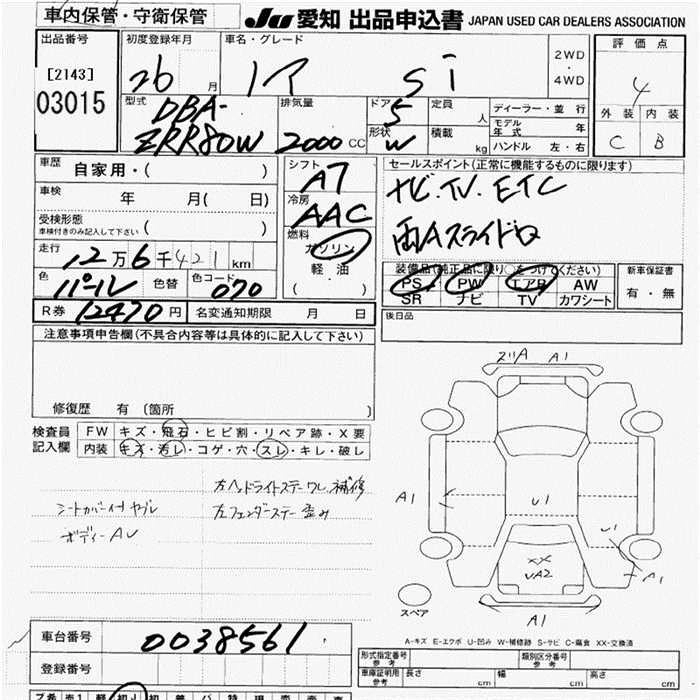 車内保管・守衛保管
JU 愛知 出品申込書 JAPAN USED CAR DEALERS ASSOCIATION
出品番号
[2143]
03015
初度登録年月
26 月
車名・グレード
ノア Si
2WD
・
4WD
評価点
4
外装 内装
C B
型式
DBA-
ZRR80W
排気量
2000 CC
ドア
5
形状
W
定員
人
積載
kg
ディーラー・並行
モデル年式 年
ハンドル 左・右
車歴
自家用・( )
車検
年 月( 日)
受検形態
車検付きのみ記入して下さい ( )
走行
12万6千421km
色
パール
色替
色コード
070
シフト
A7
冷房
AAC
燃料
ガソリン
軽・油
( )
セールスポイント(正常に機能するものに限ります)
ナビ.TV.ETC
両Aスライドロ
装備品(純正品に限り○をつけてください)
PS PW エアB AW
SR ナビ TV カワシート
新車保証書
有・無
R券 12470円
名変通知期限 月 日
後日品
注意事項申告欄(不具合内容等は具体的に記入して下さい)
修復歴 有(箇所 )
検査員
記入欄
FW キズ・飛石・ヒビ割・リペア跡・X要
内装 キズ・汚レ・コゲ・穴・スレ・キレ・破レ
シートカバー付 ヤブレ
ボディーAU
左ヘッドライトステーワレ補修
左フェンダーステー歪み
ズリA A1
A1
U1
U1
XX
UA2
A1
A1
スペア
A-キズ E-エクボ U-凹み W-補修跡 S-サビ C-腐食 XX-交換済
車台番号
0038561
登録番号
形式指定番号
参考
類別区分番号
参考
車庫証明用
参考
長さ cm
幅 cm
高さ cm